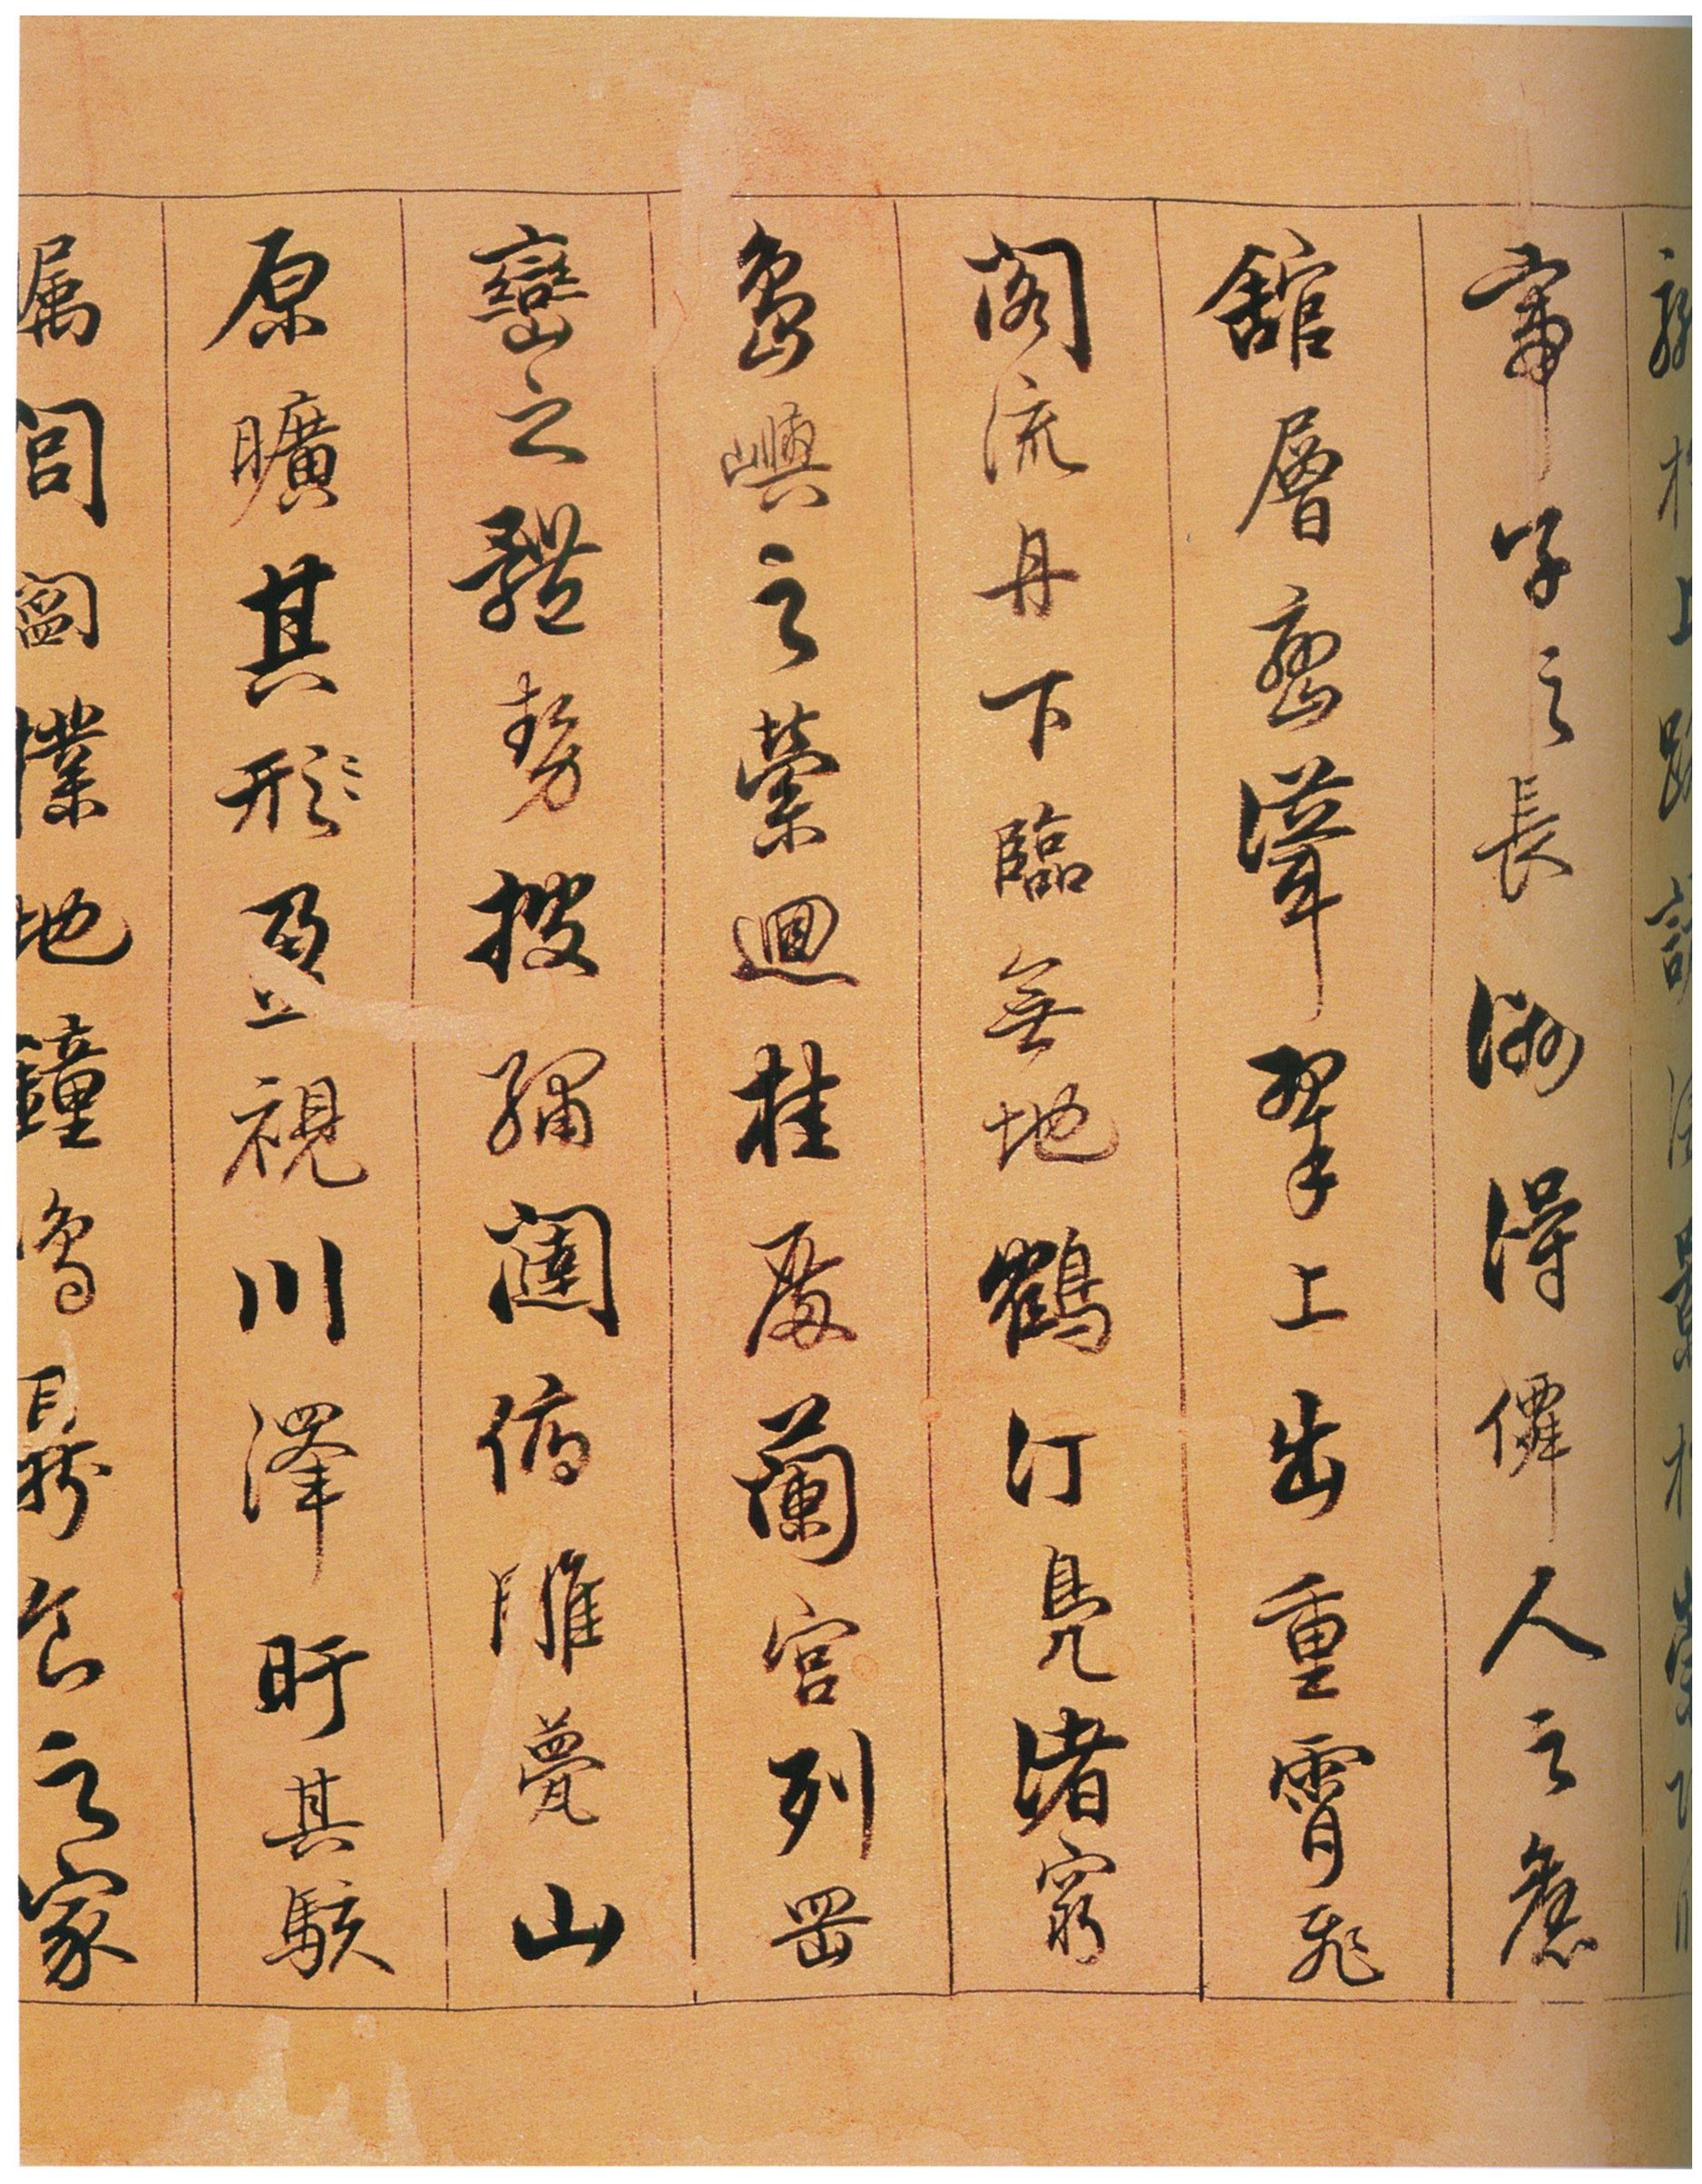 於上路訪 景於崇
帝子之長洲得僊人之舊
館層巒聳翠上出重霄飛
閣流丹下臨無地鶴汀鳧渚窮
島嶼之縈迴桂殿蘭宮列岡
巒之體勢披繡闥俯雕甍山
原曠其形盈視川澤盱其駭
矚閭閻撲地鐘鳴鼎食之家